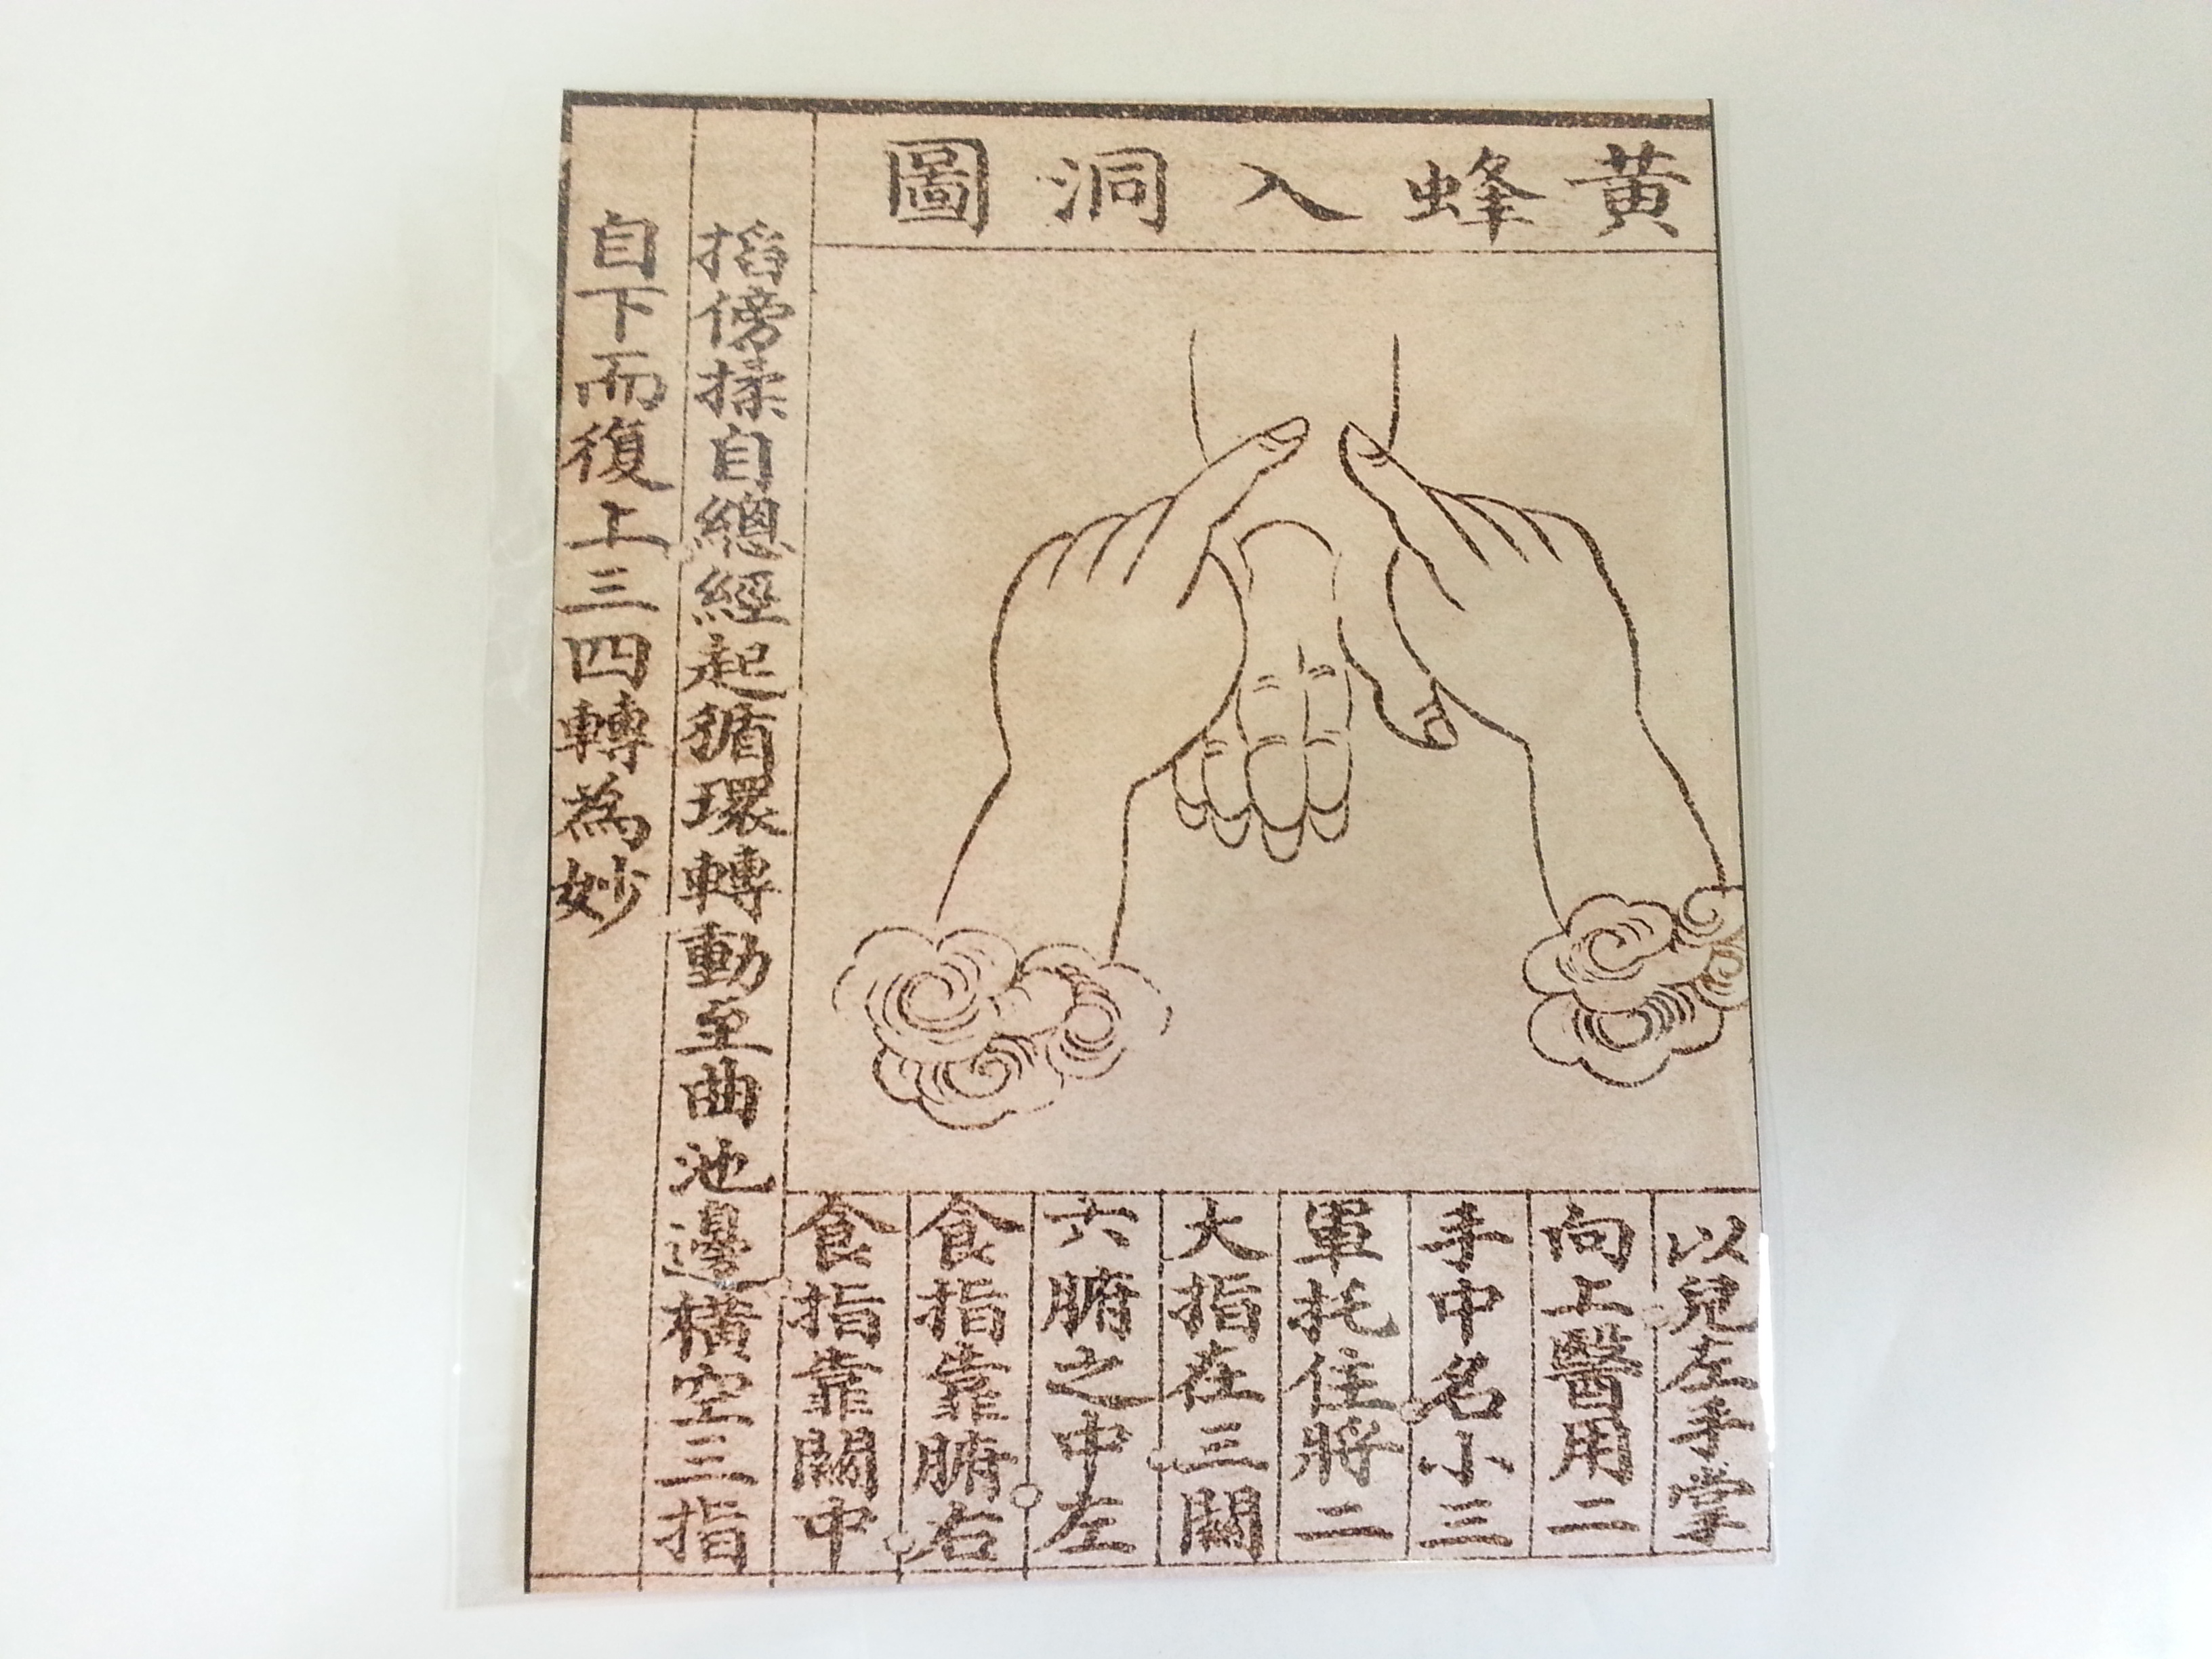 黃蜂入洞圖
以兒左手掌
向上醫用二
手中名小三
軍托住將二
大指在三關
六腑之中左
食指靠腑右
食指靠關中
掐傍揉自總經起循環轉動至曲池邊橫空三指
自下而復上三四轉為妙